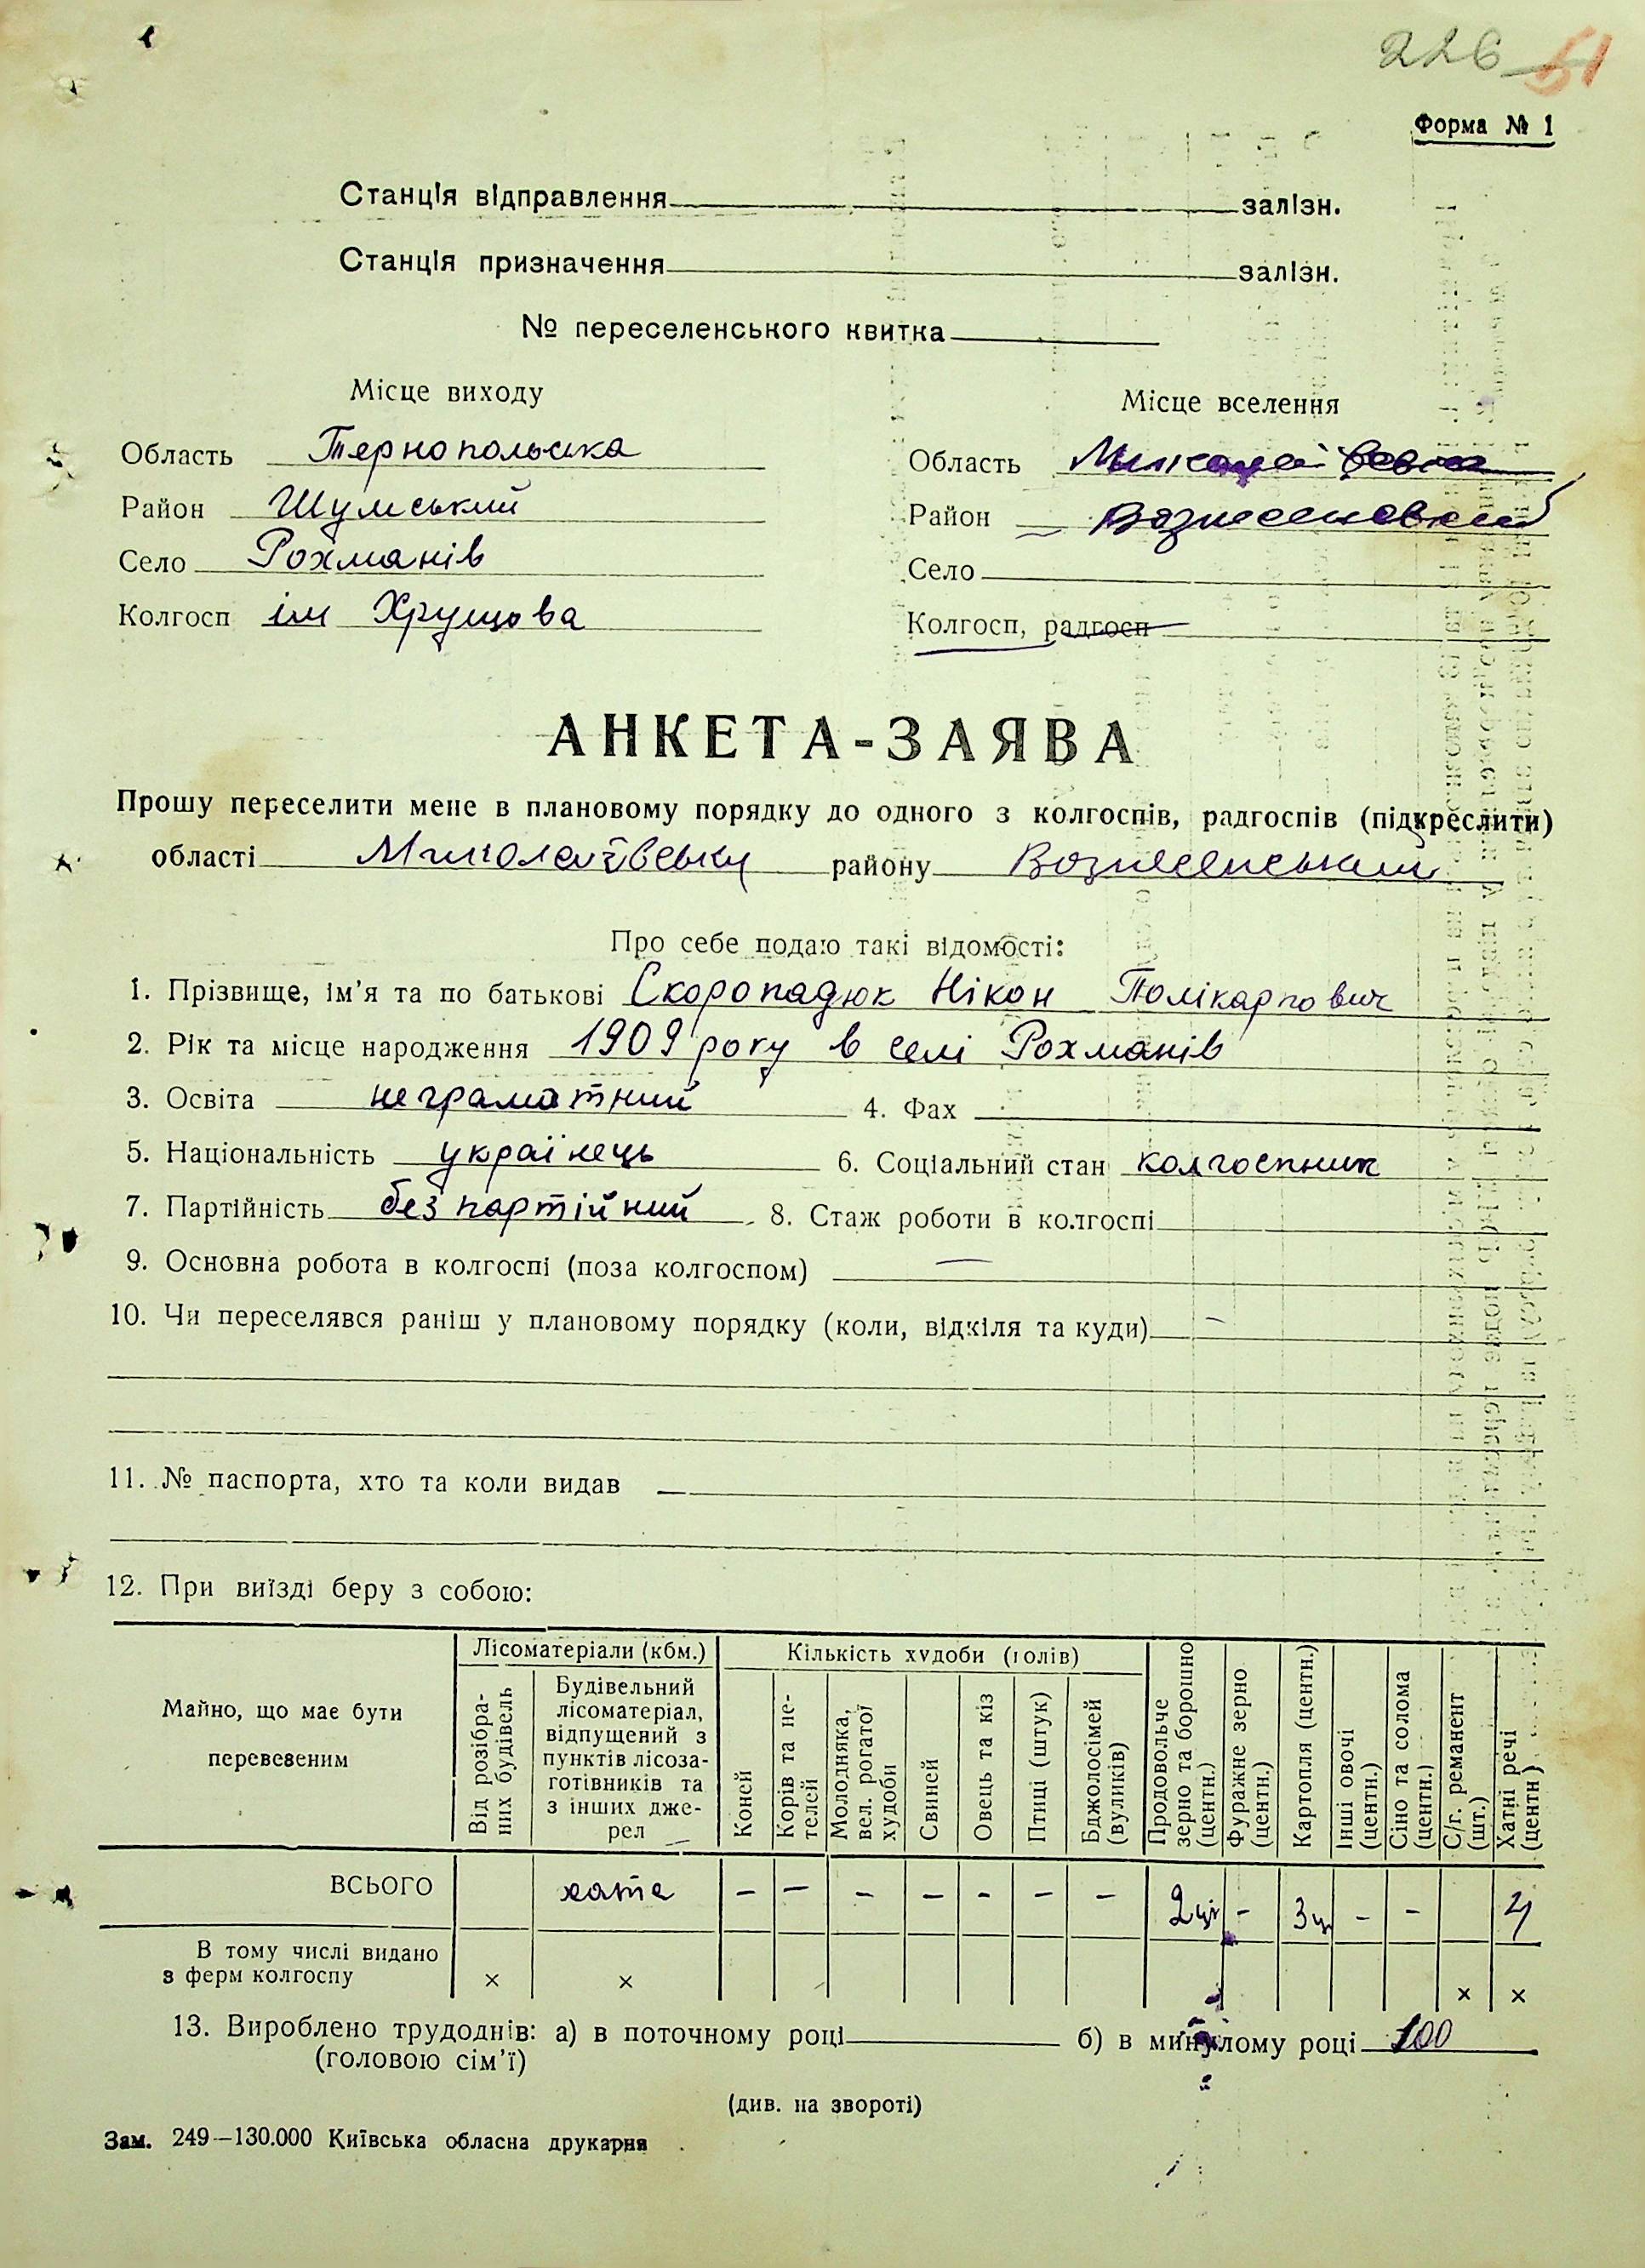 226 51
Форма № 1
Станція відправлення залізн.
Станція призначення залізн.
№ переселенського квитка
Місце виходу
Місце вселення
Область Тернопольська
Область
Район Шумський
Район
Село Рохманів
Село
Колгосп ім Хрущова
Колгосп, радгосп
АНКЕТА-ЗАЯВА
Прошу переселити мене в плановому порядку до одного з колгоспів, радгоспів (підкреслити)
області Миколаївську району Вознесенський
Про себе подаю такі відомості:
1. Прізвище, ім'я та по батькові Скоропадюк Нікон Полікарпович
2. Рік та місце народження 1909 року в селі Рохманів
3. Освіта неграматний 4. Фах
5. Національність українець 6. Соціальний стан колгоспник
7. Партійність безпартійний 8. Стаж роботи в колгоспі
9. Основна робота в колгоспі (поза колгоспом) —
10. Чи переселявся раніш у плановому порядку (коли, відкіля та куди) -
11. № паспорта, хто та коли видав —
12. При виїзді беру з собою:
Майно, що має бути
перевезеним
Лісоматеріали (кбм.)
Від розібра-
них будівель
Будівельний
лісоматеріал,
відпущений з
пунктів лісоза-
готівників та
з інших дже-
рел
Кількість худоби (голів)
Коней
Корів та не-
телей
Молодняка,
вел. рогатої
худоби
Свиней
Овець та кіз
Птиці (штук)
Бджолосімей
(вуликів)
Продовольче
зерно та борошно
(центн.)
Фуражне зерно
(центн.)
Картопля (центн.)
Інші овочі
(центн.)
Сіно та солома
(центн.)
С/г. реманент
(шт.)
Хатні речі
(центн)
ВСЬОГО хата - - - - - - - 2ц - 3ц - - 4
В тому числі видано
з ферм колгоспу × × × ×
13. Вироблено трудоднів: а) в поточному році б) в минулому році 100
(головою сім'ї)
(див. на звороті)
Зам. 249—130.000 Київська обласна друкарня